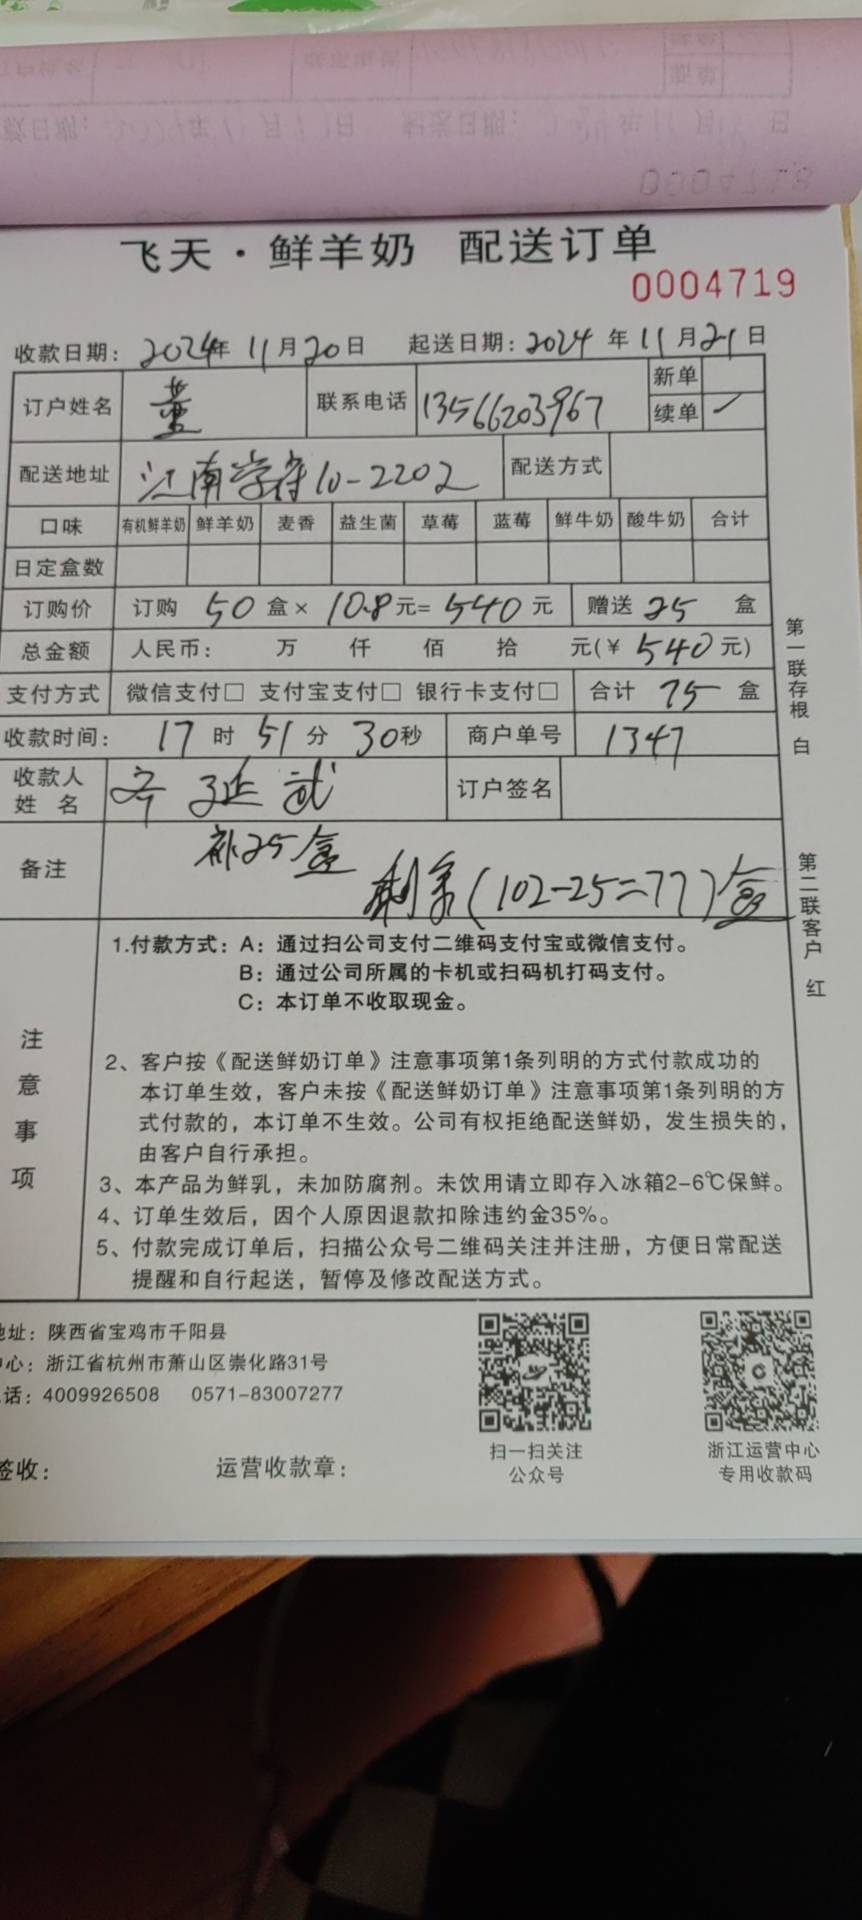 0004718
飞天·鲜羊奶 配送订单
0004719
收款日期：2024年 11月20日 起送日期：2024年 11月21日
订户姓名 董 联系电话 13566203967 新单
续单 ✓
配送地址 江南学府10-2202 配送方式
口味 有机鲜羊奶 鲜羊奶 麦香 益生菌 草莓 蓝莓 鲜牛奶 酸牛奶 合计
日定盒数
订购价 订购 50 盒× 10.8元= 540元 赠送 25 盒
总金额 人民币： 万 仟 佰 拾 元(¥ 540元)
支付方式 微信支付□ 支付宝支付□ 银行卡支付□ 合计 75 盒
收款时间： 17时 51分 30秒 商户单号 1347
收款人
姓 名 齐延武 订户签名
备注 补25盒
剩余(102-25=77)盒
注意事项
1.付款方式：A：通过扫公司支付二维码支付宝或微信支付。
B：通过公司所属的卡机或扫码机打码支付。
C：本订单不收取现金。
2、客户按《配送鲜奶订单》注意事项第1条列明的方式付款成功的
本订单生效，客户未按《配送鲜奶订单》注意事项第1条列明的方
式付款的，本订单不生效。公司有权拒绝配送鲜奶，发生损失的，
由客户自行承担。
3、本产品为鲜乳，未加防腐剂。未饮用请立即存入冰箱2-6℃保鲜。
4、订单生效后，因个人原因退款扣除违约金35%。
5、付款完成订单后，扫描公众号二维码关注并注册，方便日常配送
提醒和自行起送，暂停及修改配送方式。
第一联存根 白
第二联客户 红
地址：陕西省宝鸡市千阳县
中心：浙江省杭州市萧山区崇化路31号
电话：4009926508 0571-83007277
签收： 运营收款章：
扫一扫关注
公众号
浙江运营中心
专用收款码